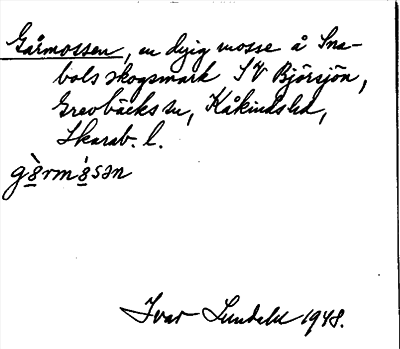 Gårmossen, en dyig mosse å Sna-
bols skogsmark SV Björsjön,
Grevbäcks sn, Kåkinds hd,
Skarab. l.
gə̀rmə́sən
Ivar Lundahl 1948.